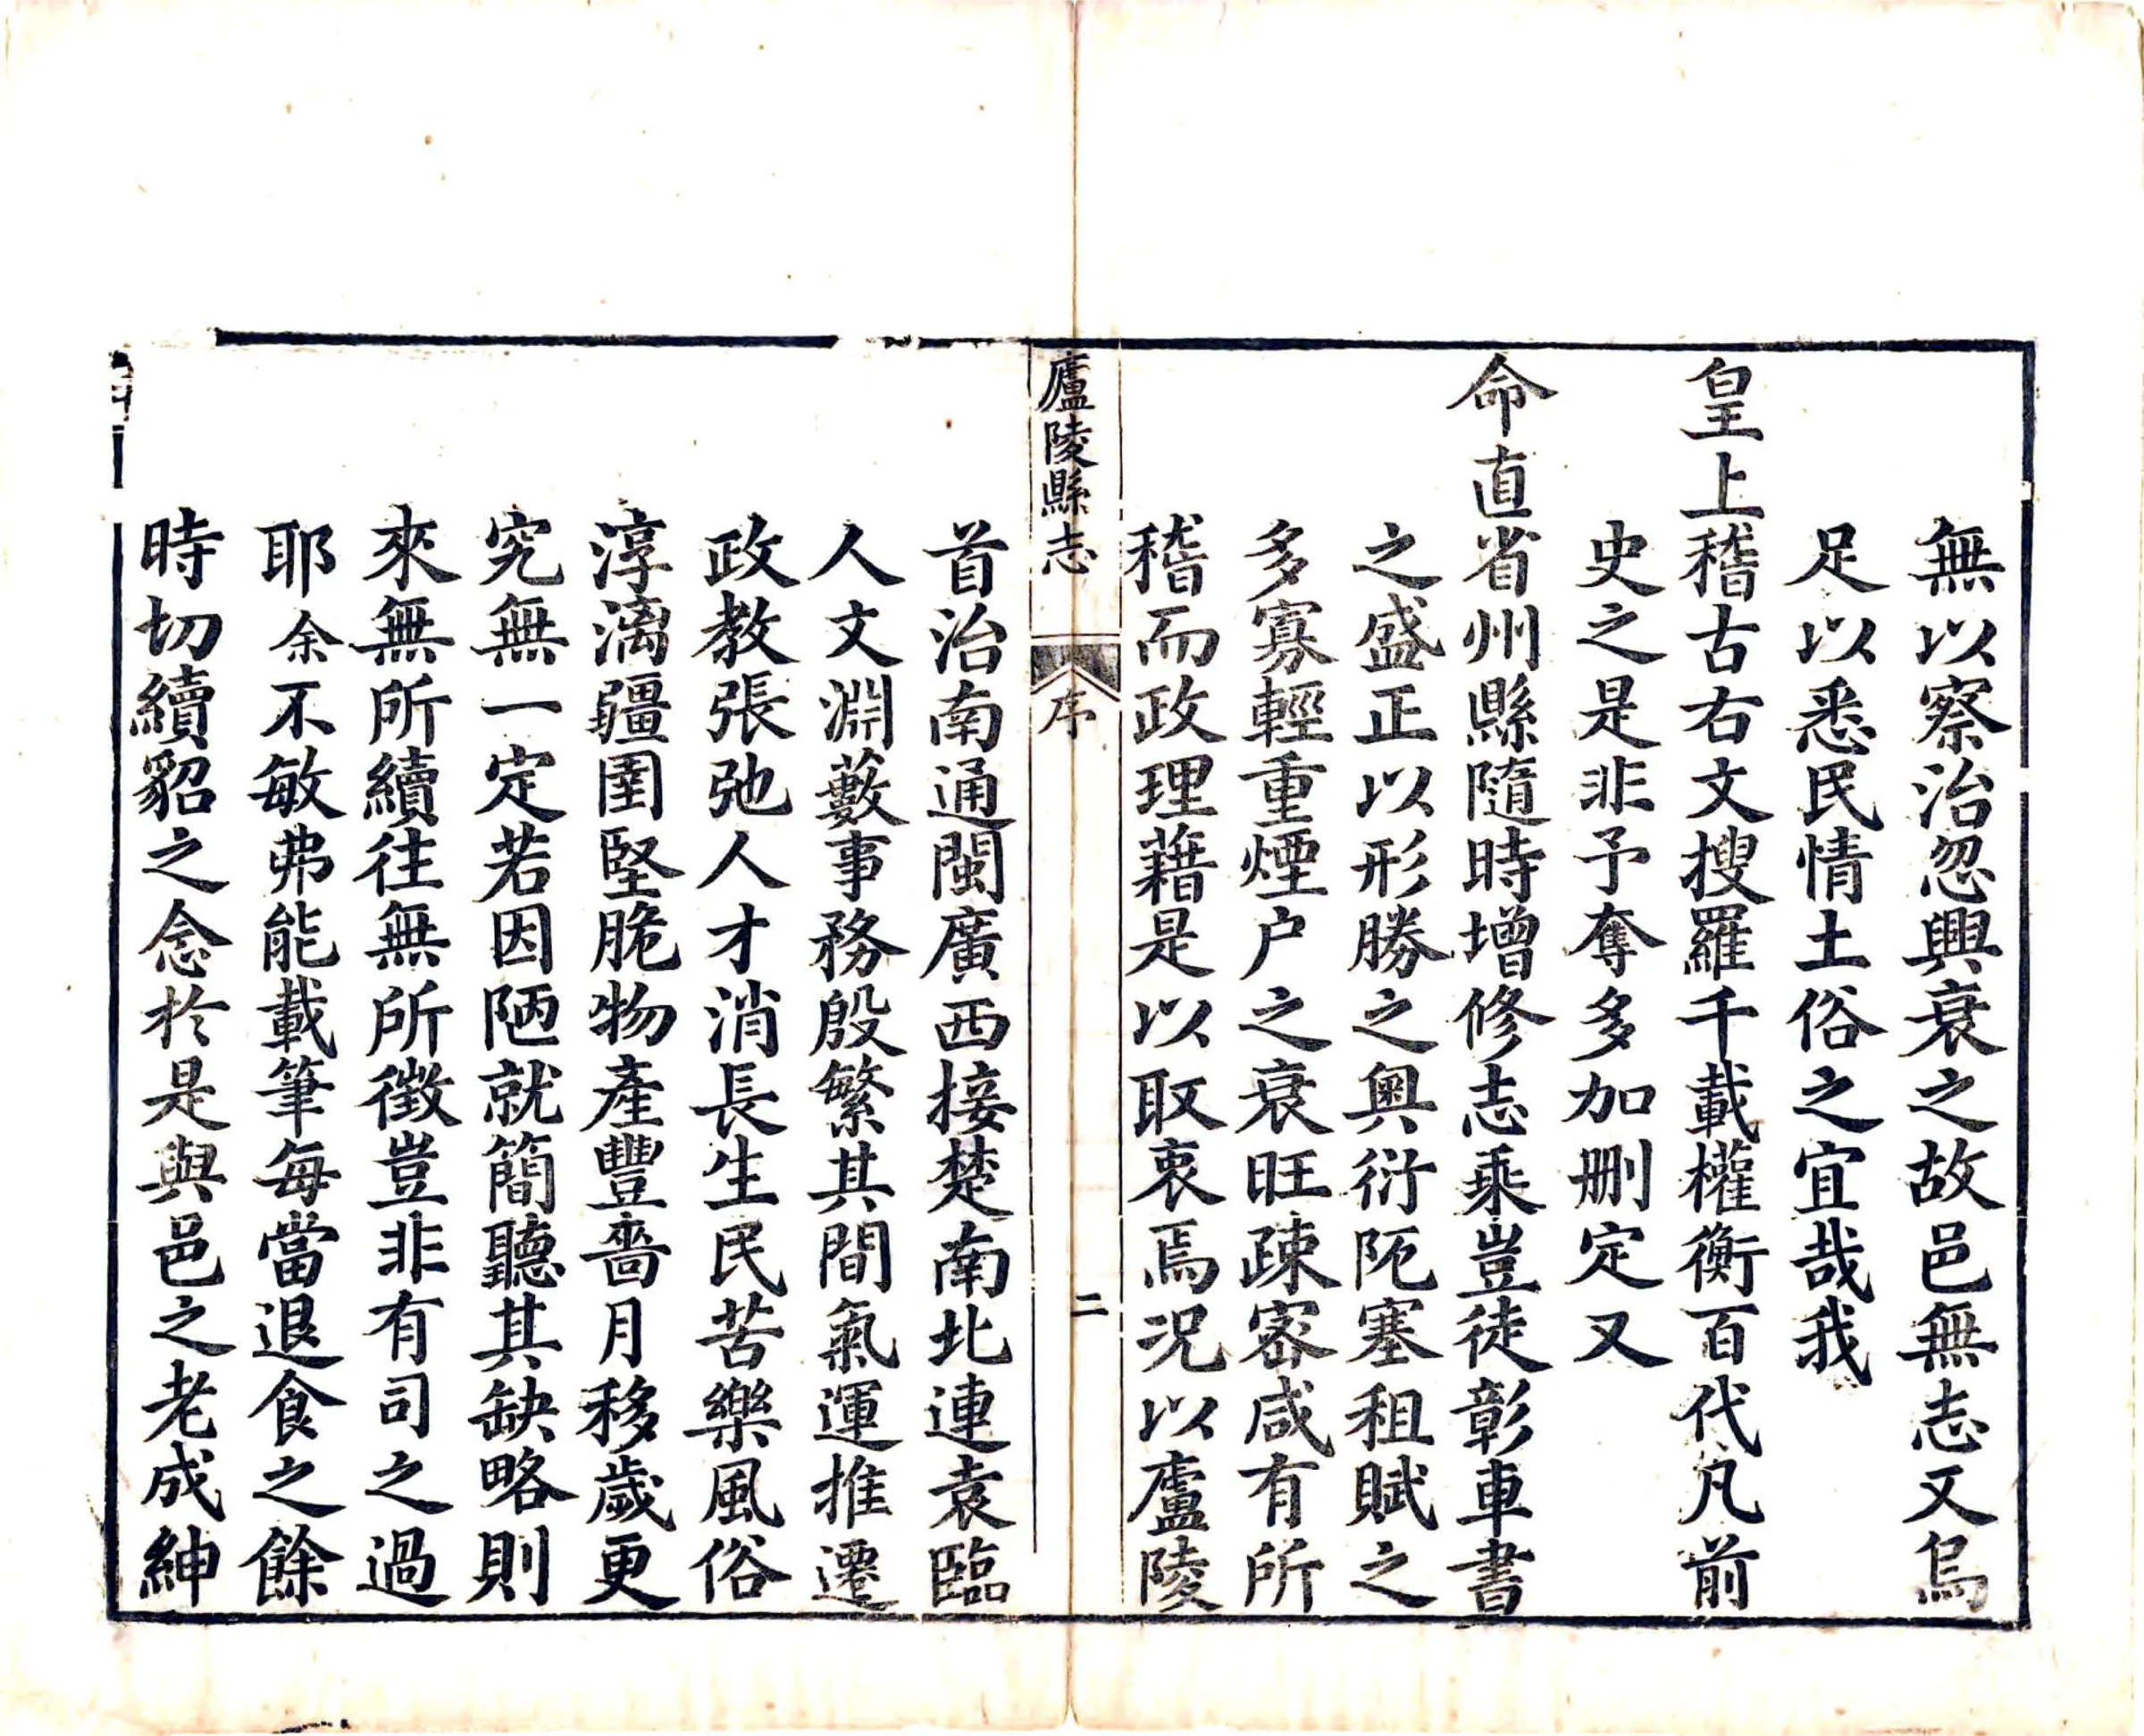 無以察治忽興衰之故邑無志又烏
足以悉民情土俗之宜哉我
皇上稽古右文搜羅千載權衡百代凡前
史之是非予奪多加删定又
命直省州縣隨時增修志乘豈徒彰車書
之盛正以形勝之奥衍阨塞租賦之
多寡輕重煙户之衰旺疎宻咸有所
稽而政理藉是以取衷焉况以廬陵
廬陵縣志
序
二
首治南通閩廣西接楚南北連袁臨
人文淵藪事務殷繁其間氣運推遷
政教張弛人才消長生民苦樂風俗
淳漓疆圉堅脆物產豐嗇月移歲更
究無一定若因陋就簡聽其缺略則
來無所續往無所徵豈非有司之過
耶余不敏弗能載筆每當退食之餘
時切續貂之念於是與邑之老成紳